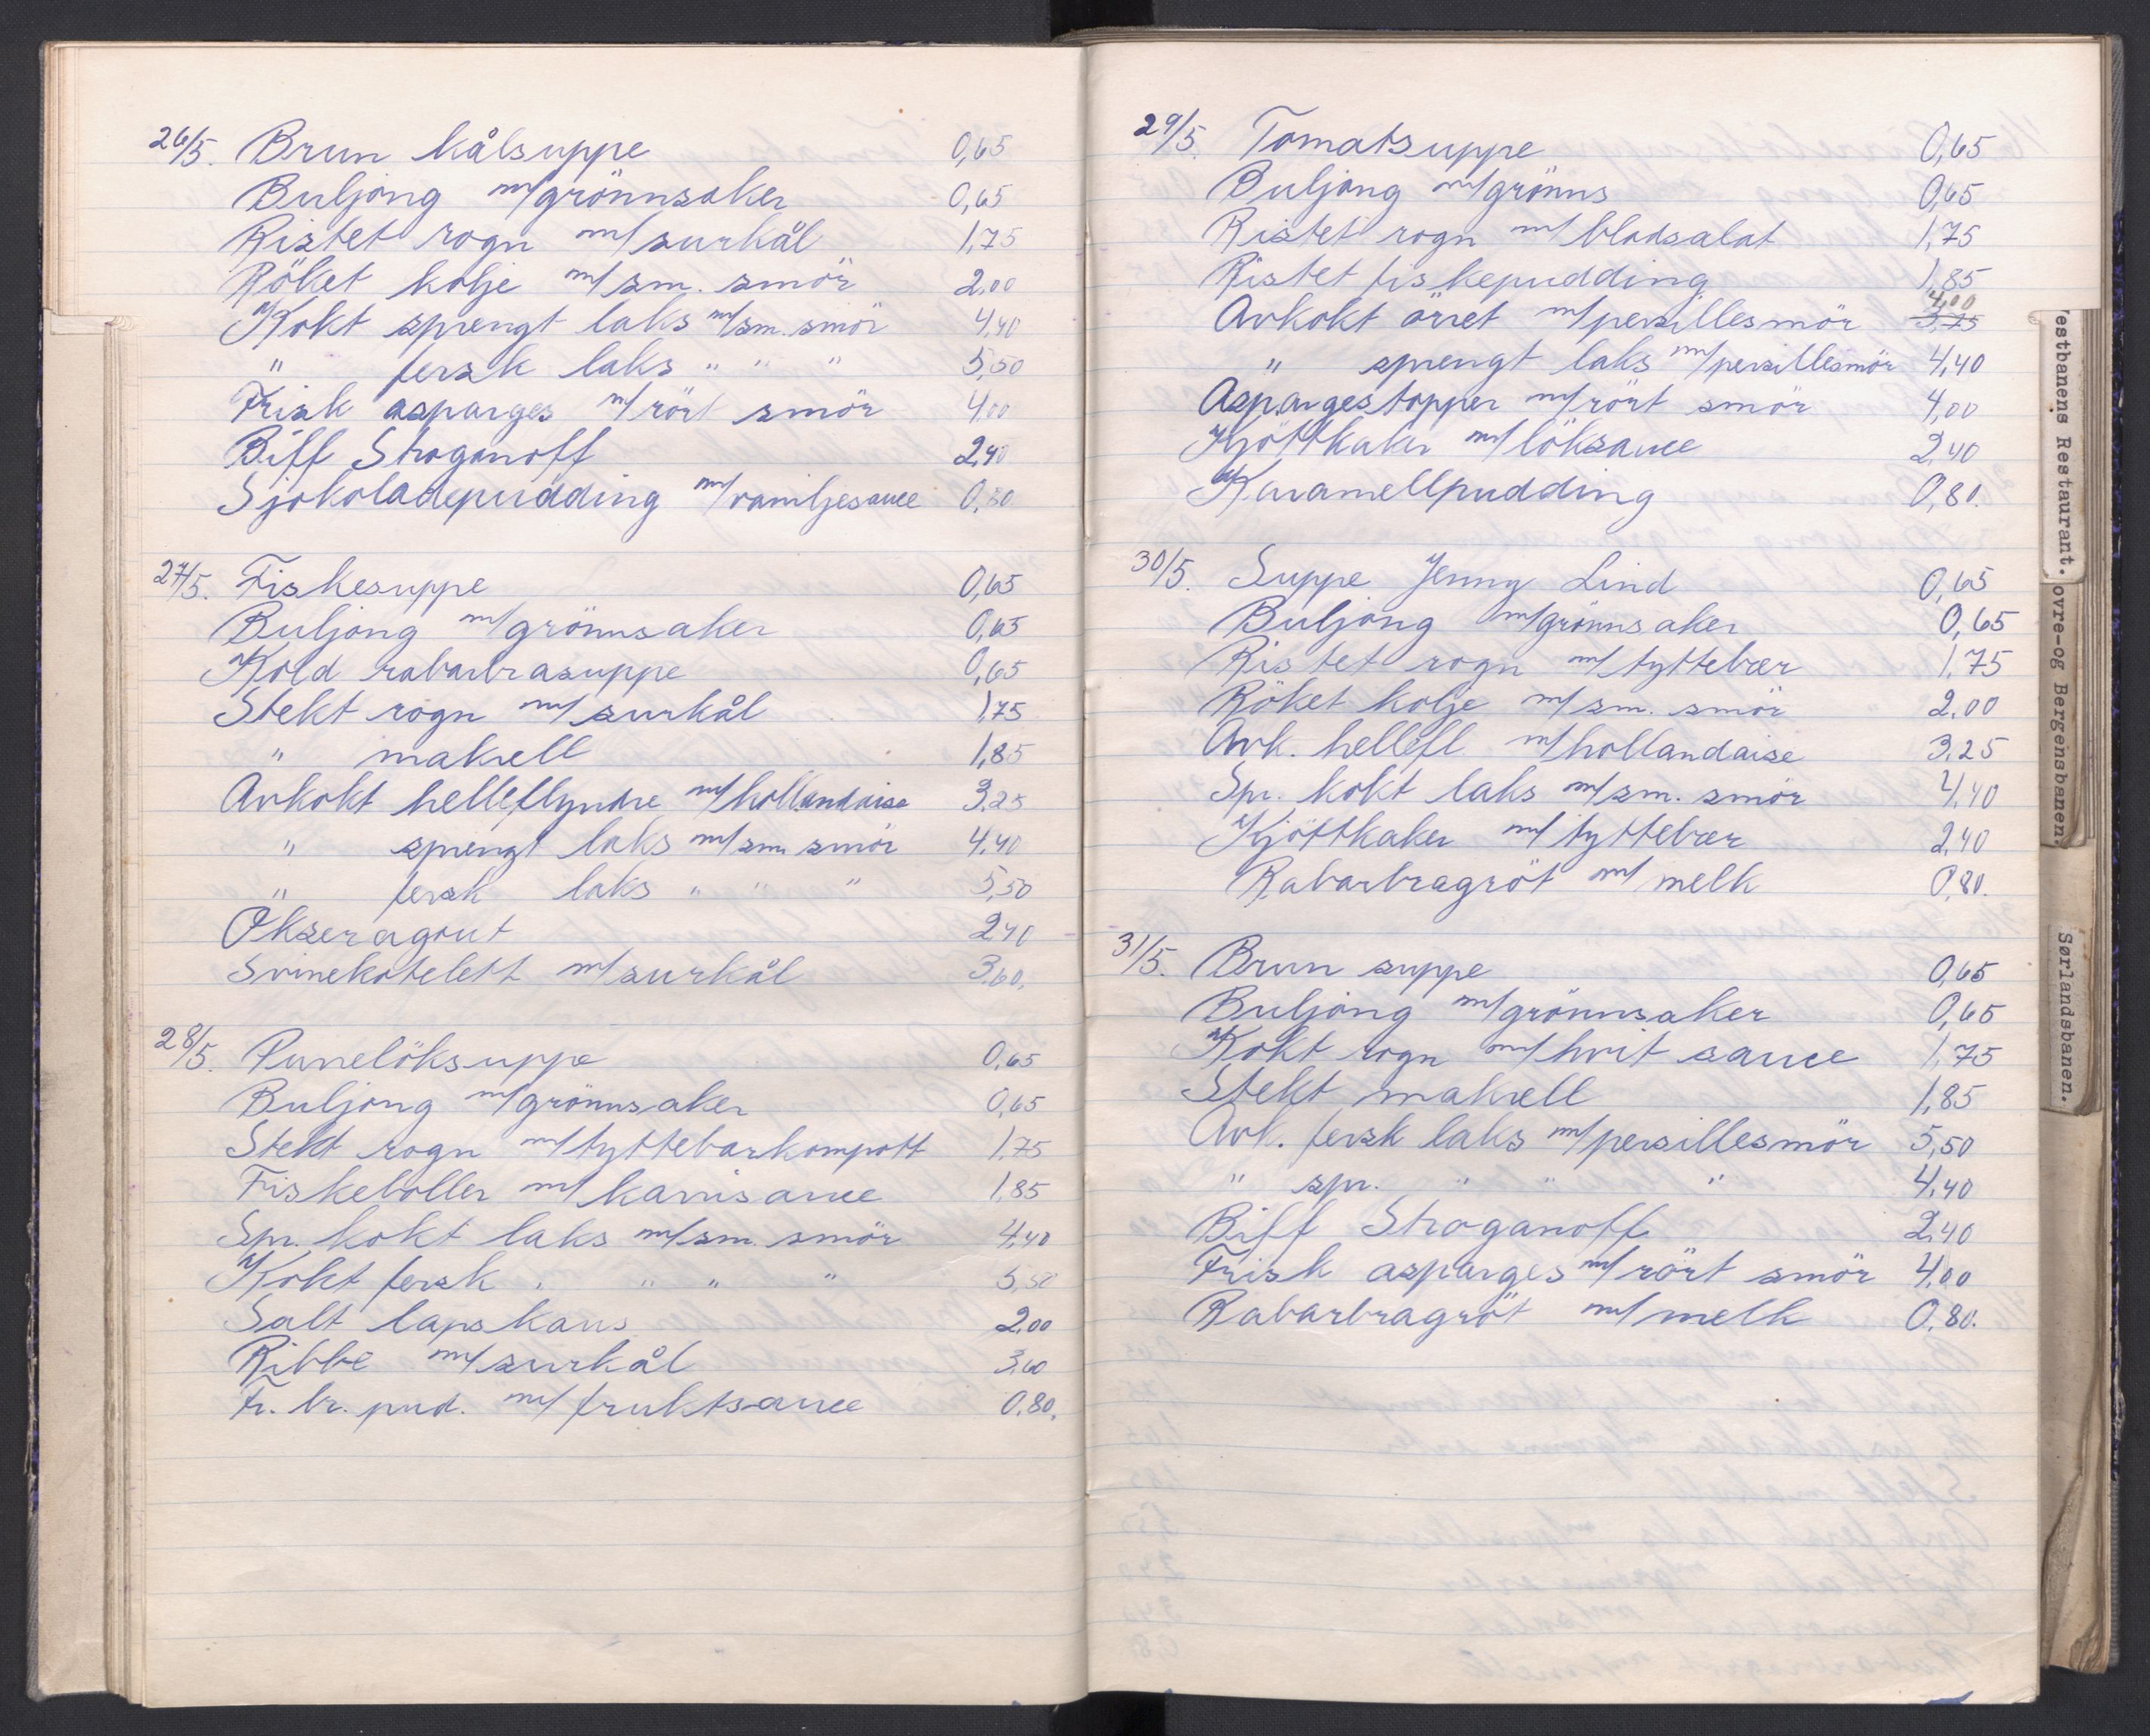 26/5. Brun kålsuppe 0,65
Buljong m/grönnsaker 0,65
Ristet rogn m/surkål 1,75
Röket kolje m/sm. smör 2,00
Kokt sprengt laks m/sm. smör 4,40
" fersk laks " " " 5,50
Frisk asparges m/rört smör 4,00
Biff Stroganoff 2,40
Sjokoladepudding m/vaniljesauce 0,80
27/5. Fiskesuppe 0,65
Buljong m/grönnsaker 0,65
Kold rabarbrasuppe 0,65
Stekt rogn m/surkål 1,75
" makrell 1,85
Avkokt helleflyndre m/hollandaise 3,25
" sprengt laks m/sm smör 4,40
" fersk laks " " " 5,50
Okseragout 2,40
Svinekotelett m/surkål 3,60.
28/5. Purrelöksuppe 0,65
Buljong m/grönnsaker 0,65
Stekt rogn m/tyttebærkompott 1,75
Fiskeboller m/karrisauce 1,85
Spr. kokt laks m/sm. smör 4,40
Kokt fersk " " " " 5,50
Salt lapskaus 2,00
Ribbe m/surkål 3,60
Fr. br. pud. m/fruktsauce 0,80.
29/5. Tomatsuppe 0,65
Buljong m/grönns 0,65
Ristet rogn m/bladsalat 1,75
Ristet fiskepudding 1,85
Avkokt örret m/persillesmör 3,75 4,00
" sprengt laks m/persillesmör 4,40
Aspargestopper m/rört smör 4,00
Kjöttkaker m/löksauce 2,40
Karamellpudding 0,80.
30/5. Suppe Jenny Lind 0,65
Buljong m/grönnsaker 0,65
Ristet rogn m/tyttebær 1,75
Röket kolje m/sm. smör 2,00
Avk. hellefl m/hollandaise 3,25
Spr. kokt laks m/sm. smör 4,40
Kjöttkaker m/tyttebær 2,40
Rabarbragröt m/melk 0,80.
31/5. Brun suppe 0,65
Buljong m/grönnsaker 0,65
Kokt rogn m/hvit sauce 1,75
Stekt makrell 1,85
Avk. fersk laks m/persillesmör 5,50
" spr. " " " 4,40
Biff Stroganoff 2,40
Frisk asparges m/rört smör 4,00
Rabarbragröt m/melk 0,80.
estbanens Restaurant.
ovre-og Bergensbanen.
Sørlandsbanen.